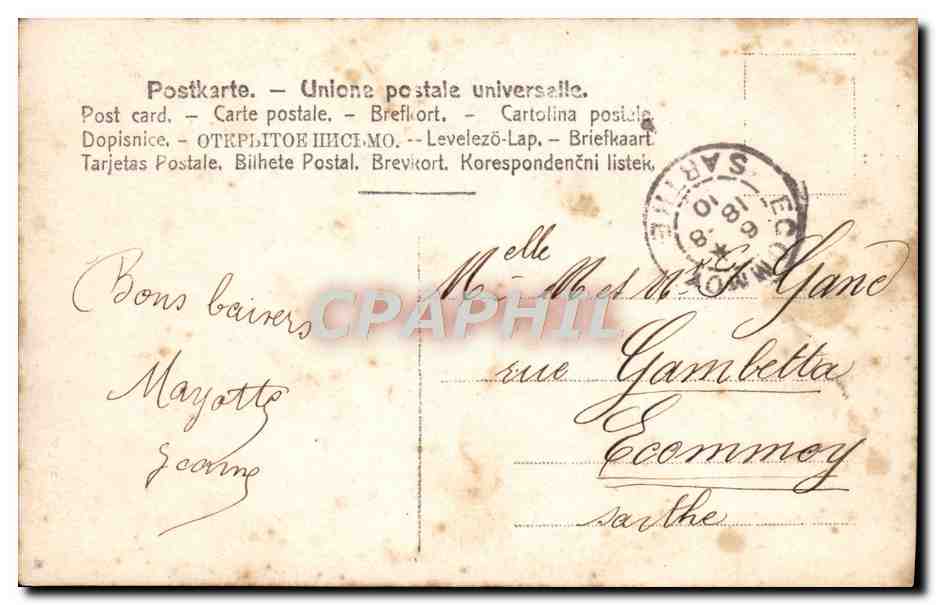 Postkarte. – Unione postale universelle.
Post card. – Carte postale. – Brefkort. – Cartolina postale.
Dopisnice. – ОТКРЫТОЕ ПИСЬМО. – Levelezö-Lap. – Briefkaart.
Tarjetas Postale. Bilhete Postal. Brevkort. Korespondenčni listek.
ECOMMOY
SARTHE
10
18 -8
6
Bons baisers
Mayotte
Jeanne
Melle M et Gand
rue Gambetta
Ecommoy
Sarthe
CPAPHIL